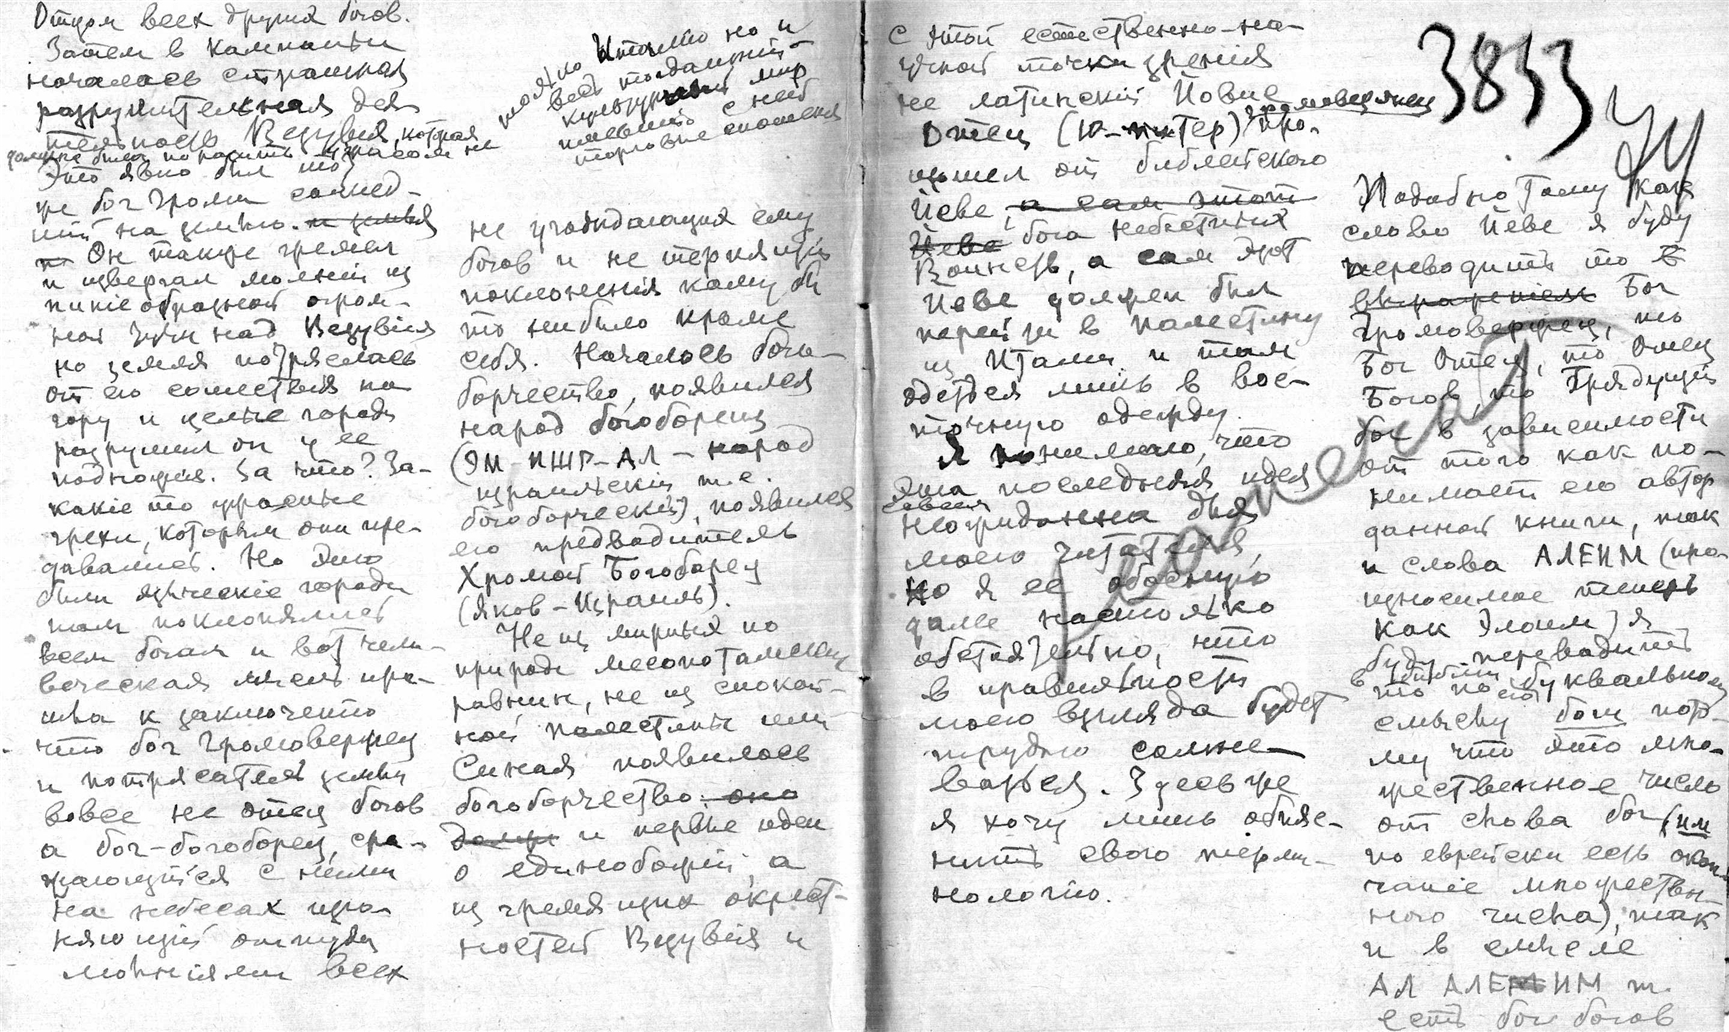 Отцом всех других богов.
Затем в Кампаньи
началась страшная
разрушительная дея
тельность Везувия, которая
должна была поразить ужасом не
Это явно был тот
же бог Громи сошед-
ший на землю. и земля
Он также гремел
и извергал молнии из
пиниеобразной огром-
ной тучи над Везувием
но земля потряслась
от его сошествия на
гору и целые города
разрушил он у ее
подножия. За что? За-
какие то ужасные
грехи, которым они пре-
давались. Но это
были языческие города
там поклонялись
всем богам и вот чело-
веческая мысль при-
шла к заключению
что бог Громовержец
и потрясатель земли
вовсе не отец богов
а бог-богоборец, сра-
жающийся с ними
на небесах изго-
няющий оттуда
молниями всех
только Италию но и
весь тогдашний
культурный мир
имевший с ней
торговые сношения
не угождающих ему
богов и не терпящий
поклонения кому бы
то нибыло кроме
себя. Началось бого-
борчество, появился
народ богоборец
(ЭМ-ИШР-АЛ - народ
израильский т.е.
богоборческий), появился
его предводитель
Хромой Богоборец
(Яков-Израиль).
Не из мирных по
природе месопотамских
равнин, не из спокой-
ной Палестины или
Синая появилось
богоборчество. оно
и первые идеи
о единобожии, а
из гремящих окрест-
ностей Везувия и
с этой естественно-на-
учной точки зрения
не латинский Йовис
громовержец
Отец (Ю-питер) про-
изошел от библейского
Йеве, а сам этот
Йеве бога небесных
Воинств, а сам этот
Йеве должен был
перейти в Палестину
из Италии и там
одеться лишь в вос-
точную одежду.
Я понимаю, что
эта последняя идея
совсем
неожиданна для
моего читателя,
но я ее обосную
далее настолько
обстоятельно, что
в правильности
моего взгляда будет
трудно сомне-
ваться. Здесь же
я хочу лишь объяс-
нить свою терми-
нологию.
3853
Подобно тому как
слово Йеве я буду
переводить то
выражением Бог
Громовержец, то
Бог Отец, то Отец
Богов, то Грядущий
бог в зависимости
от того как по-
нимает его автор
данной книги, так
и слова АЛЕИМ (про-
износимое теперь
как Элоим) я
буду переводить
в библии
то по его буквальному
смыслу боги пото-
му что это мно-
жественное число
от слова бог (им
по еврейски есть окон-
чание множествен-
ного числа), так
и в смысле
АЛ АЛЕИМ т.
есть бог богов